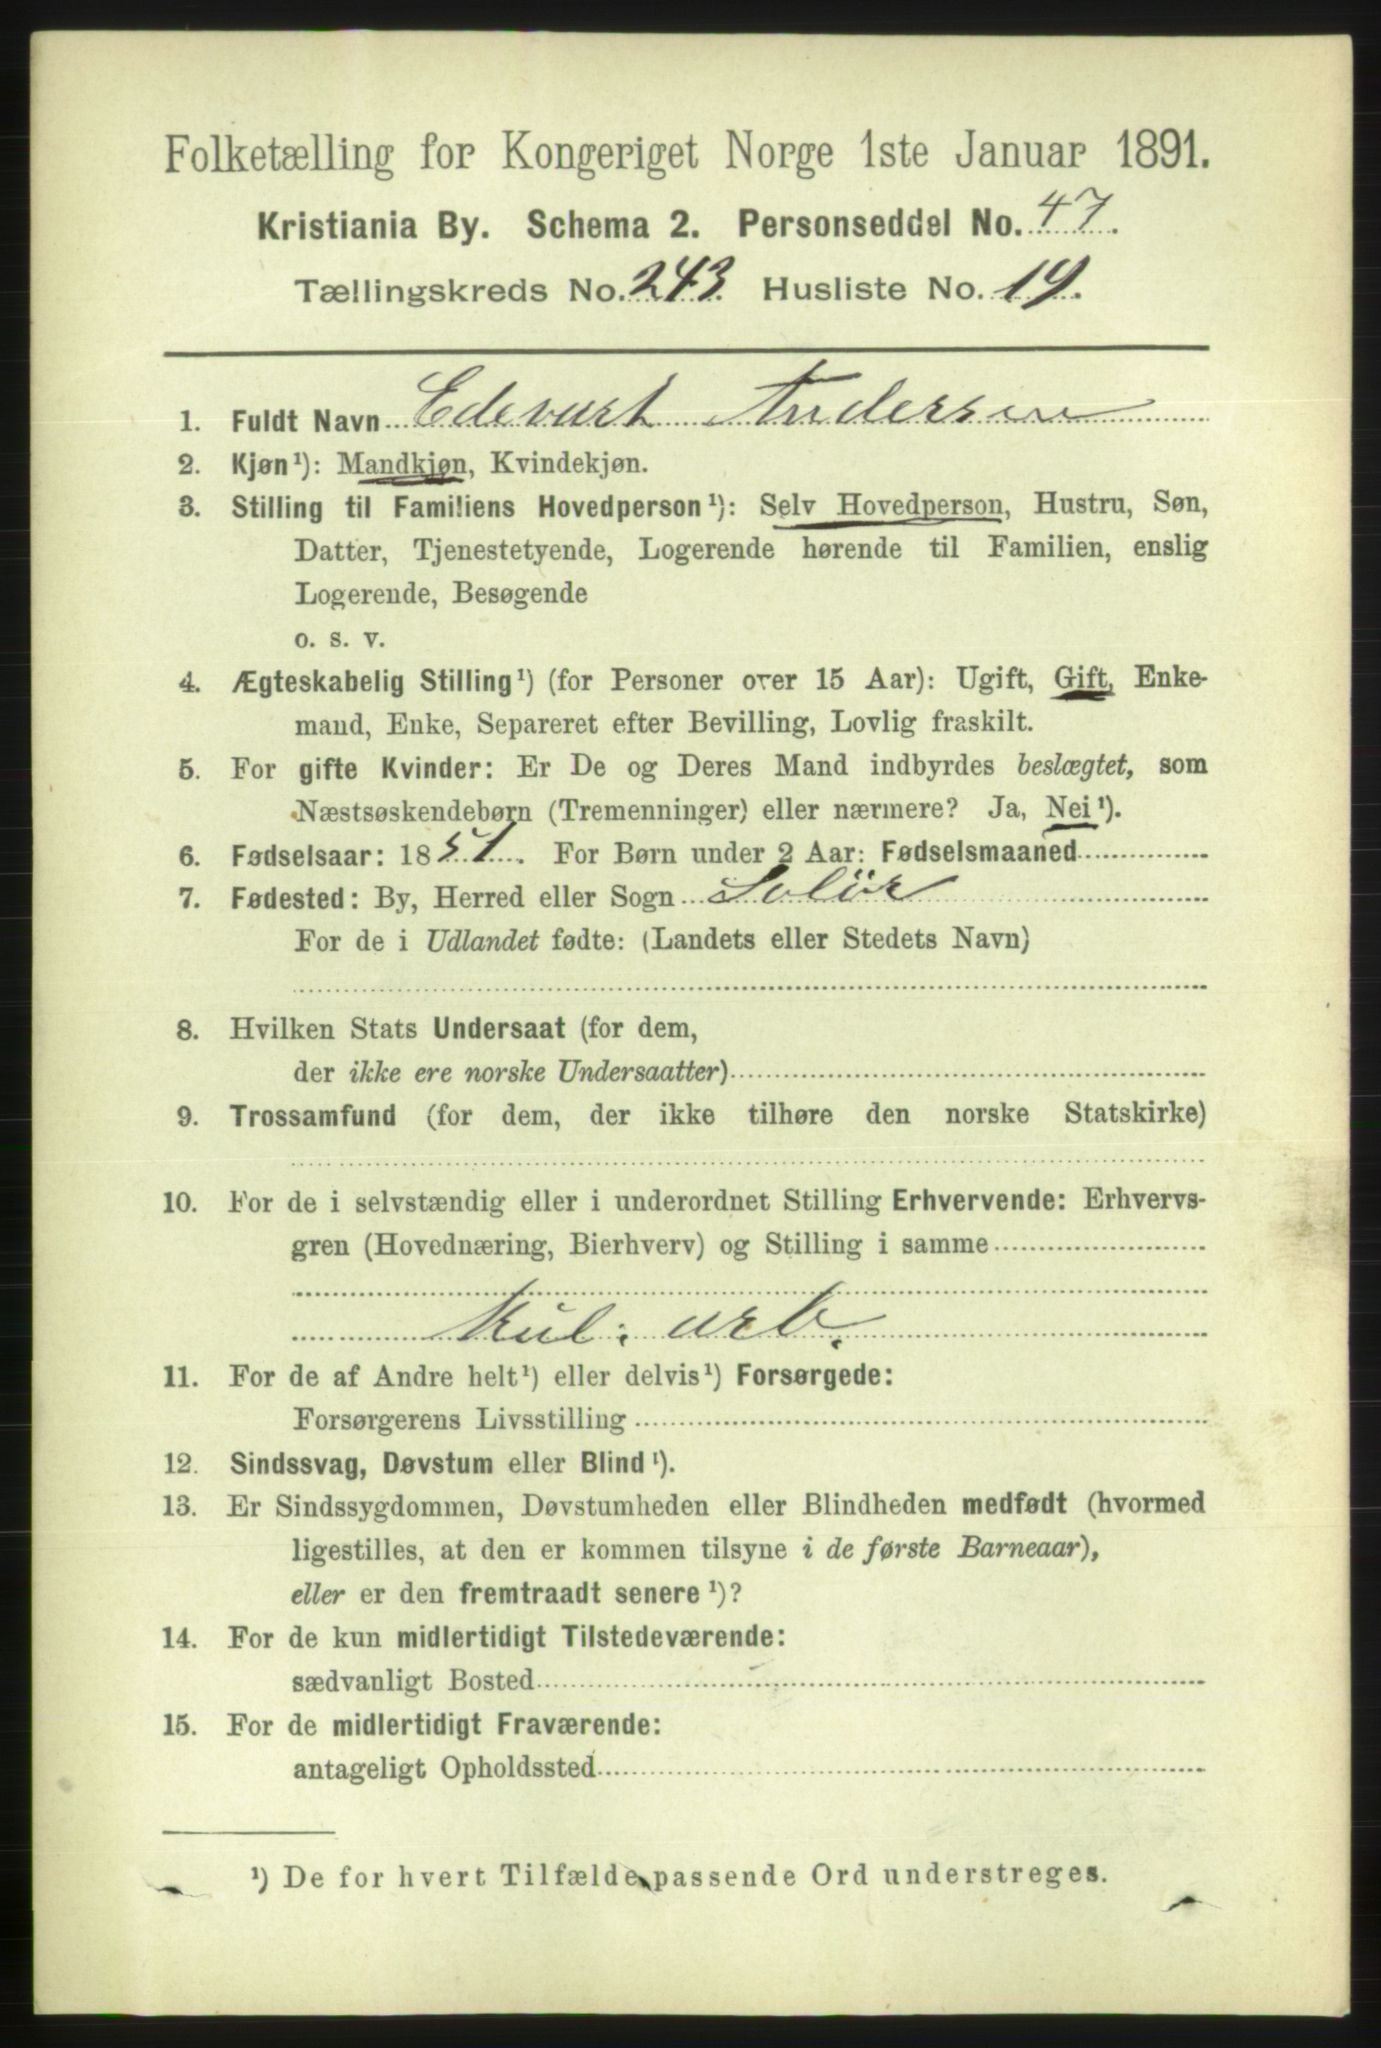 Folketælling for Kongeriget Norge 1ste Januar 1891.
Kristiania By. Schema 2. Personseddel No. 47.
Tællingskreds No. 243. Husliste No. 19.
1. Fuldt Navn Edevart Andersen
2. Kjøn¹): Mandkjøn, Kvindekjøn.
3. Stilling til Familiens Hovedperson¹): Selv Hovedperson, Hustru, Søn,
Datter, Tjenestetyende, Logerende hørende til Familien, enslig
Logerende, Besøgende
o. s. v.
4. Ægteskabelig Stilling¹) (for Personer over 15 Aar): Ugift, Gift, Enke-
mand, Enke, Separeret efter Bevilling, Lovlig fraskilt.
5. For gifte Kvinder: Er De og Deres Mand indbyrdes beslægtet, som
Næstsøskendebørn (Tremenninger) eller nærmere? Ja, Nei¹).
6. Fødselsaar: 1851. For Børn under 2 Aar: Fødselsmaaned
7. Fødested: By, Herred eller Sogn Solör
For de i Udlandet fødte: (Landets eller Stedets Navn)
8. Hvilken Stats Undersaat (for dem,
der ikke ere norske Undersaatter)
9. Trossamfund (for dem, der ikke tilhøre den norske Statskirke)
10. For de i selvstændig eller i underordnet Stilling Erhvervende: Erhvervs-
gren (Hovednæring, Bierhverv) og Stilling i samme
Kul. arb.
11. For de af Andre helt¹) eller delvis¹) Forsørgede:
Forsørgerens Livsstilling
12. Sindssvag, Døvstum eller Blind¹).
13. Er Sindssygdommen, Døvstumheden eller Blindheden medfødt (hvormed
ligestilles, at den er kommen tilsyne i de første Barneaar),
eller er den fremtraadt senere¹)?
14. For de kun midlertidigt Tilstedeværende:
sædvanligt Bosted
15. For de midlertidigt Fraværende:
antageligt Opholdssted
¹) De for hvert Tilfælde passende Ord understreges.